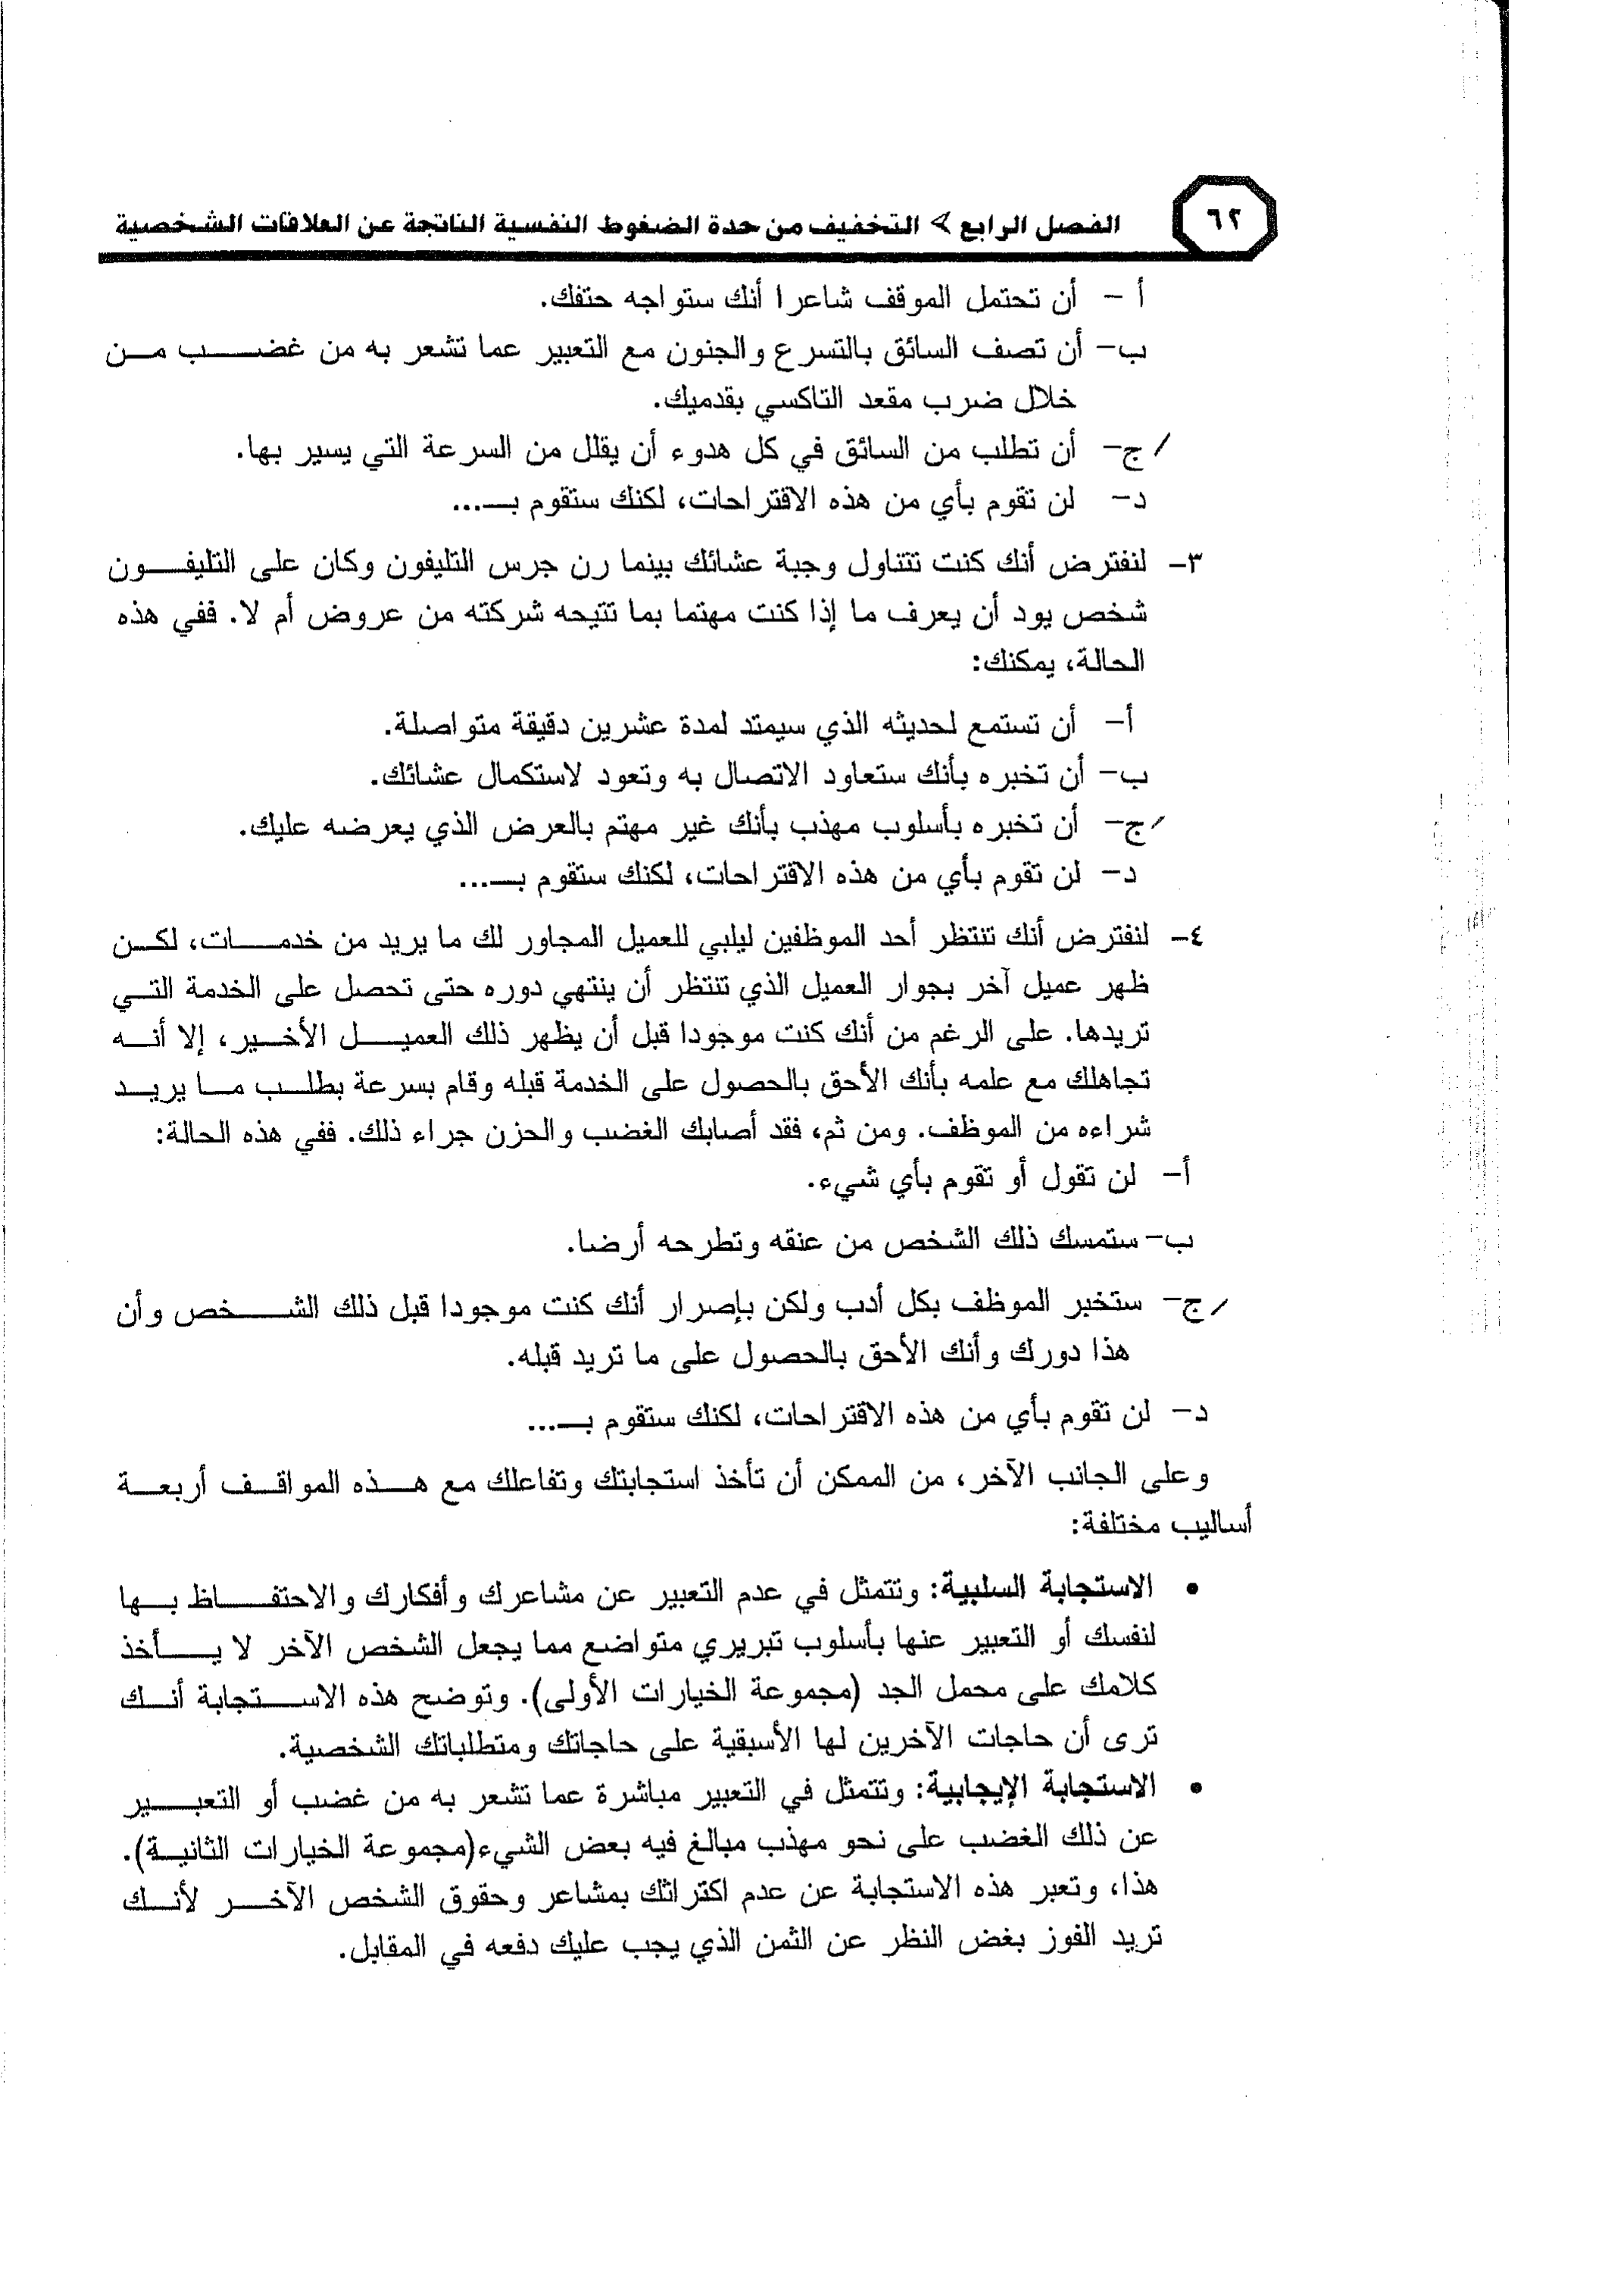 ٦٢
الفصل الرابع > التخفيف من حدة الضغوط النفسية الناتجة عن العلاقات الشخصية
أ - أن تحتمل الموقف شاعرا أنك ستواجه حتفك.
ب- أن تصف السائق بالتسرع والجنون مع التعبير عما تشعر به من غضب من
خلال ضرب مقعد التاكسي بقدميك.
/ ج- أن تطلب من السائق في كل هدوء أن يقلل من السرعة التي يسير بها.
د- لن تقوم بأي من هذه الاقتراحات، لكنك ستقوم بـ...
٣- لنفترض أنك كنت تتناول وجبة عشائك بينما رن جرس التليفون وكان على التليفون
شخص يود أن يعرف ما إذا كنت مهتما بما تتيحه شركته من عروض أم لا. ففي هذه
الحالة، يمكنك:
أ- أن تستمع لحديثه الذي سيمتد لمدة عشرين دقيقة متواصلة.
ب- أن تخبره بأنك ستعاود الاتصال به وتعود لاستكمال عشائك.
/ ج- أن تخبره بأسلوب مهذب بأنك غير مهتم بالعرض الذي يعرضه عليك.
د- لن تقوم بأي من هذه الاقتراحات، لكنك ستقوم بـ...
٤- لنفترض أنك تنتظر أحد الموظفين ليلبي للعميل المجاور لك ما يريد من خدمات، لكن
ظهر عميل آخر بجوار العميل الذي تنتظر أن ينتهي دوره حتى تحصل على الخدمة التي
تريدها. على الرغم من أنك كنت موجودا قبل أن يظهر ذلك العميل الأخير، إلا أنه
تجاهلك مع علمه بأنك الأحق بالحصول على الخدمة قبله وقام بسرعة بطلب ما يريد
شراءه من الموظف. ومن ثم، فقد أصابك الغضب والحزن جراء ذلك. ففي هذه الحالة:
أ- لن تقول أو تقوم بأي شيء.
ب- ستمسك ذلك الشخص من عنقه وتطرحه أرضا.
/ ج- ستخبر الموظف بكل أدب ولكن بإصرار أنك كنت موجودا قبل ذلك الشخص وأن
هذا دورك وأنك الأحق بالحصول على ما تريد قبله.
د- لن تقوم بأي من هذه الاقتراحات، لكنك ستقوم بـ...
وعلى الجانب الآخر، من الممكن أن تأخذ استجابتك وتفاعلك مع هذه المواقف أربعة
أساليب مختلفة:
• الاستجابة السلبية: وتتمثل في عدم التعبير عن مشاعرك وأفكارك والاحتفاظ بها
لنفسك أو التعبير عنها بأسلوب تبريري متواضع مما يجعل الشخص الآخر لا يأخذ
كلامك على محمل الجد (مجموعة الخيارات الأولى). وتوضح هذه الاستجابة أنك
ترى أن حاجات الآخرين لها الأسبقية على حاجاتك ومتطلباتك الشخصية.
• الاستجابة الإيجابية: وتتمثل في التعبير مباشرة عما تشعر به من غضب أو التعبير
عن ذلك الغضب على نحو مهذب مبالغ فيه بعض الشيء(مجموعة الخيارات الثانية).
هذا، وتعبر هذه الاستجابة عن عدم اكتراثك بمشاعر وحقوق الشخص الآخر لأنك
تريد الفوز بغض النظر عن الثمن الذي يجب عليك دفعه في المقابل.